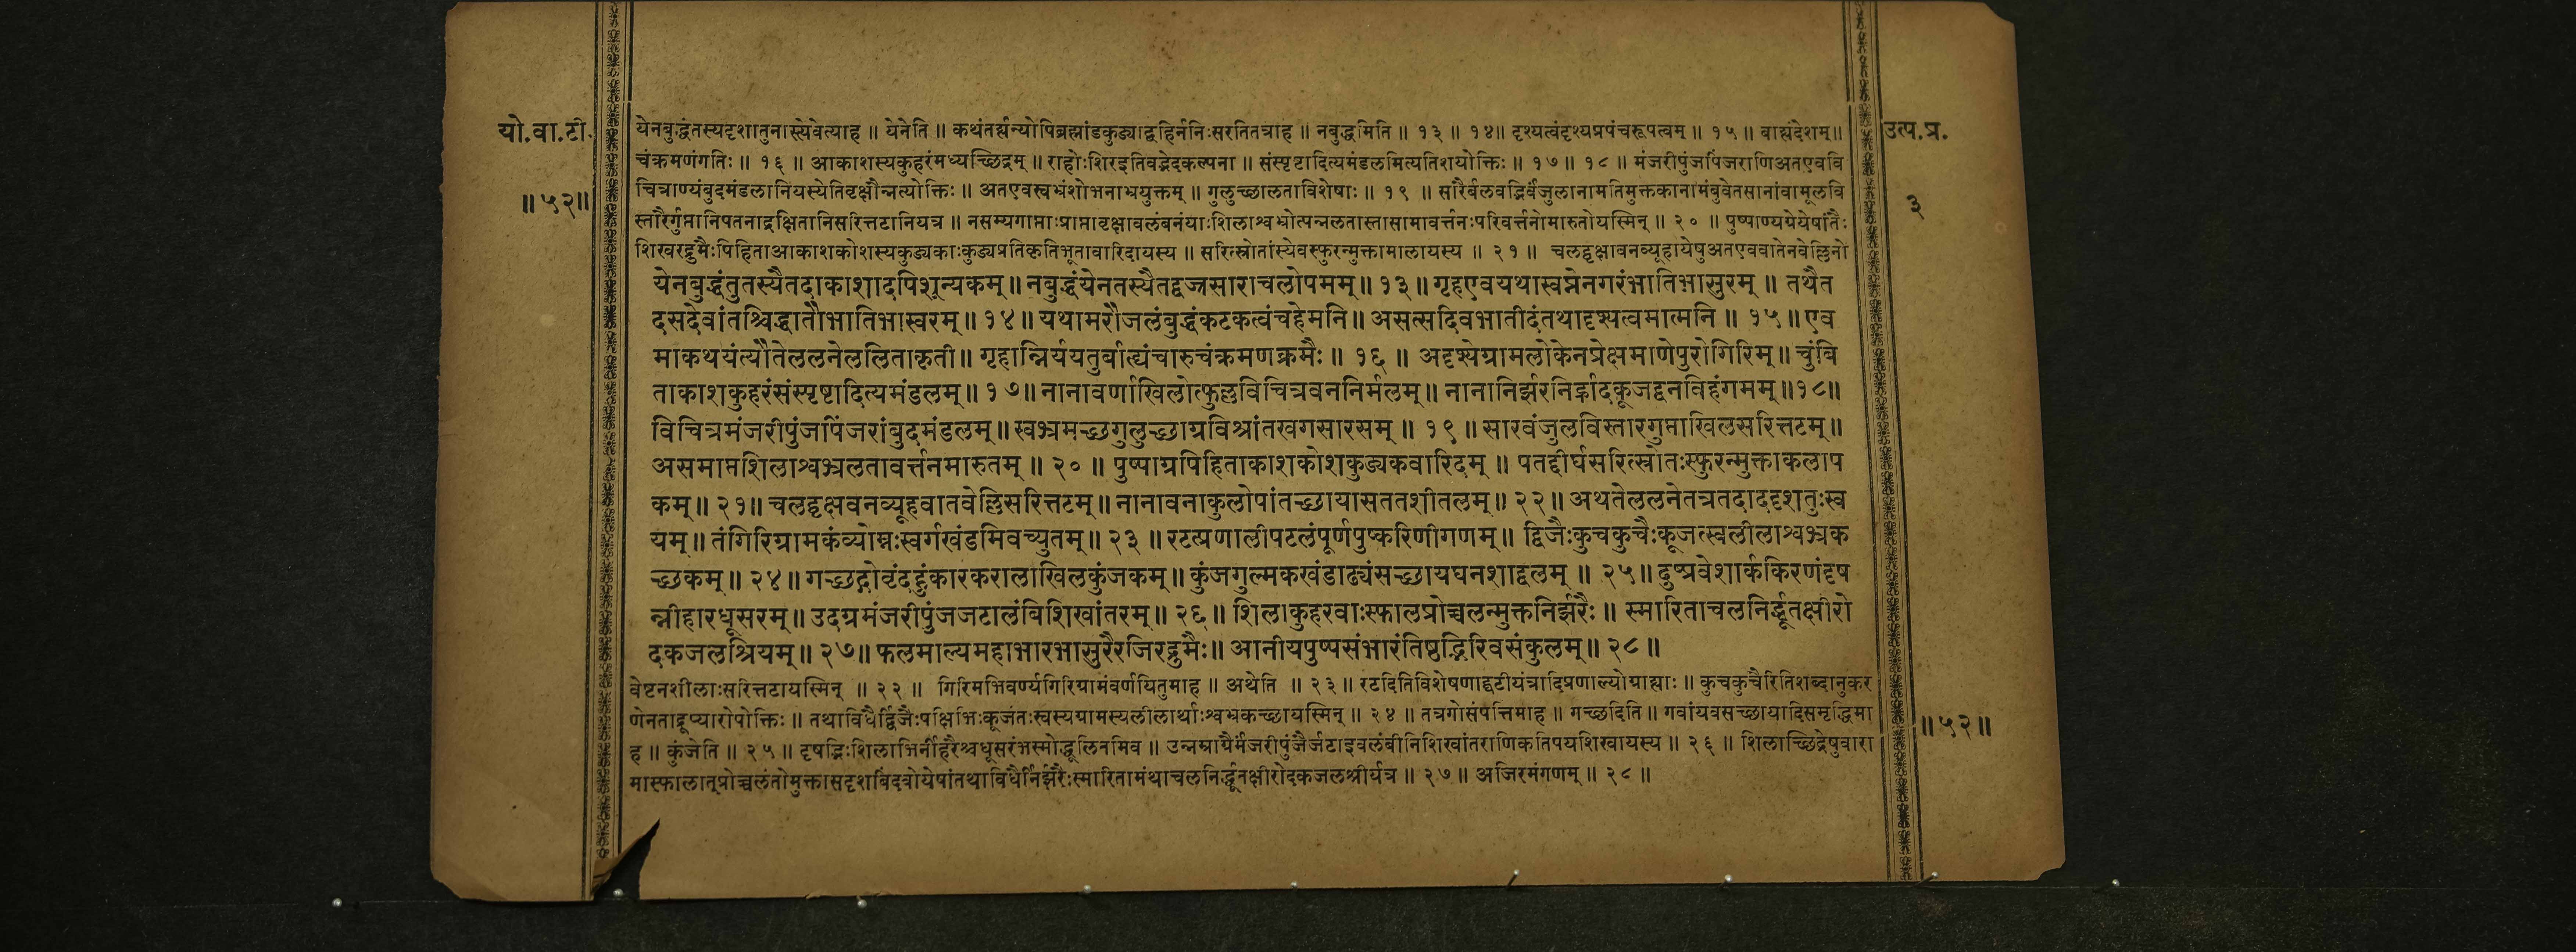 यो.वा.टी.
॥५२॥
उत्प.प्र.
३
येनबुद्धंतस्यदृशातुनास्त्येवेत्याह ॥ येनेति ॥ कथंतर्ह्यन्योपिब्रह्मांडकुड्याद्बहिर्ननिःसरतितत्राह ॥ नबुद्धमिति ॥ १३ ॥ १४॥ दृश्यत्वंदृश्यप्रपंचरूपत्वम् ॥ १५ ॥ बाह्यंदेशम्॥
चंक्रमणंगतिः ॥ १६ ॥ आकाशस्यकुहरंमध्यच्छिद्रम् ॥ राहोःशिरइतिवद्भेदकल्पना ॥ संस्पृष्टादित्यमंडलमित्यतिशयोक्तिः ॥ १७ ॥ १८ ॥ मंजरीपुंजपिंजराणिअतएववि
चित्राण्यंबुदमंडलानियस्येतिवृक्षौन्नत्योक्तिः ॥ अतएवस्वभ्रंशोभनाभ्रयुक्तम् ॥ गुलुच्छालताविशेषाः ॥ १९ ॥ सारैर्बलवद्भिर्वंजुलानामतिमुक्तकानामंबुवेतसानांवामूलवि
स्तारैर्गुप्तानिपतनाद्रक्षितानिसरित्तटानियत्र ॥ नसम्यगाप्ताःप्राप्तावृक्षावलंबनंयाःशिलाश्वभ्रोत्पन्नलतास्तासामावर्त्तनःपरिवर्त्तनोमारुतोयस्मिन् ॥ २० ॥ पुष्पाण्यग्रेयेषांतैः
शिखरद्रुमैःपिहिताआकाशकोशस्यकुड्यकाःकुड्यप्रतिकृतिभूतावारिदायस्य ॥ सरित्स्रोतांस्येवस्फुरन्मुक्तामालायस्य ॥ २१ ॥ चलद्वृक्षावनव्यूहायेषुअतएववातेनवेल्लिनो
येनबुद्धंतुतस्यैतदाकाशादपिशून्यकम् ॥ नबुद्धंयेनतस्यैतद्वज्रसाराचलोपमम् ॥ १३ ॥ गृहएवयथास्वप्नेनगरंभातिभासुरम् ॥ तथैत
दसदेवांतश्चिद्धातौभातिभास्वरम् ॥ १४ ॥ यथामरौजलंबुद्धंकटकत्वंचहेमनि ॥ असत्सदिवभातीदंतथादृश्यत्वमात्मनि ॥ १५ ॥ एव
माकथयंत्यौतेललनेललिताकृती ॥ गृहान्निर्ययतुर्बाह्यंचारुचंक्रमणक्रमैः ॥ १६ ॥ अदृश्येग्रामलोकेनप्रेक्षमाणेपुरोगिरिम् ॥ चुंबि
ताकाशकुहरंसंस्पृष्टादित्यमंडलम् ॥ १७ ॥ नानावर्णाखिलोत्फुल्लविचित्रवननिर्मलम् ॥ नानानिर्झरनिर्ह्रादकूजद्वनविहंगमम् ॥ १८॥
विचित्रमंजरीपुंजपिंजरांबुदमंडलम् ॥ स्वभ्रमच्छगुलुच्छाग्रविश्रांतखगसारसम् ॥ १९ ॥ सारवंजुलविस्तारगुप्ताखिलसरित्तटम् ॥
असमाप्तशिलाश्वभ्रलतावर्त्तनमारुतम् ॥ २० ॥ पुष्पाग्रपिहिताकाशकोशकुड्यकवारिदम् ॥ पतद्दीर्घसरित्स्रोतःस्फुरन्मुक्ताकलाप
कम् ॥ २१ ॥ चलद्वृक्षवनव्यूहवातवेल्लिसरित्तटम् ॥ नानावनाकुलोपांतच्छायासततशीतलम् ॥ २२ ॥ अथतेललनेतत्रतदाददृशतुःस्व
यम् ॥ तंगिरिग्रामकंव्योम्नःस्वर्गखंडमिवच्युतम् ॥ २३ ॥ रटत्प्रणालीपटलंपूर्णपुष्करिणीगणम् ॥ द्विजैःकुचकुचैःकूजत्स्वलीलाश्वभ्रक
च्छकम् ॥ २४ ॥ गच्छद्गोवृंदहुंकारकरालाखिलकुंजकम् ॥ कुंजगुल्मकखंडाढ्यंसच्छायघनशाद्वलम् ॥ २५ ॥ दुष्प्रवेशार्ककिरणंदृष
न्नीहारधूसरम् ॥ उदग्रमंजरीपुंजजटालंबिशिखांतरम् ॥ २६ ॥ शिलाकुहरवाःस्फालप्रोच्चलन्मुक्तनिर्झरैः ॥ स्मारिताचलनिर्द्धूतक्षीरो
दकजलश्रियम् ॥ २७ ॥ फलमाल्यमहाभारभासुरैरजिरद्रुमैः ॥ आनीयपुष्पसंभारंतिष्ठद्भिरिवसंकुलम् ॥ २८ ॥
वेष्टनशीलाःसरित्तटायस्मिन् ॥ २२ ॥ गिरिमभिवर्ण्यगिरिग्रामंवर्णयितुमाह ॥ अथेति ॥ २३ ॥ रटदितिविशेषणाद्घटीयंत्रादिप्रणाल्योग्राह्याः ॥ कुचकुचैरितिशब्दानुकर
णेनताद्रूप्यारोपोक्तिः ॥ तथाविधैर्द्विजैःपक्षिभिःकूजंतःस्वस्यग्रामस्यलीलार्थाःश्वभ्रकच्छायस्मिन् ॥ २४ ॥ तत्रगोसंपत्तिमाह ॥ गच्छदिति ॥ गवांयवसच्छायादिसमृद्धिमा
ह ॥ कुंजेति ॥ २५ ॥ दृषद्भिःशिलाभिर्नीहारैश्चधूसरंभस्मोद्धूलितमिव ॥ उन्नम्राग्रैर्मंजरीपुंजैर्जटाइवलंबीनिशिखांतराणिकतिपयशिखायस्य ॥ २६ ॥ शिलाच्छिद्रेषुवारा
मास्फालात्प्रोच्चलंतोमुक्तासदृशबिंदवोयेषांतथाविधैर्निर्झरैःस्मारितामंथाचलनिर्द्धूतक्षीरोदकजलश्रीर्यत्र ॥ २७ ॥ अजिरमंगणम् ॥ २८ ॥
॥५२॥